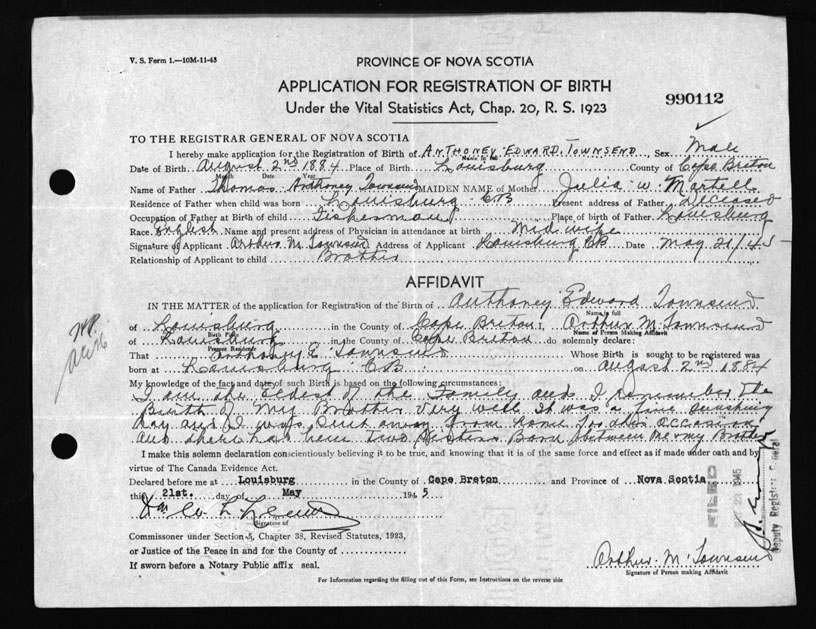 V. S. Form 1.—10M-11-43
PROVINCE OF NOVA SCOTIA
APPLICATION FOR REGISTRATION OF BIRTH
990112
Under the Vital Statistics Act, Chap. 20, R. S. 1923
TO THE REGISTRAR GENERAL OF NOVA SCOTIA
I hereby make application for the Registration of Birth of ANTHONEY EDWARD TOWNSEND Sex Male
Name in full
Date of Birth August 2nd 1884 Place of Birth Louisburg County of Cape Breton
Month Date Year
Name of Father Thomas Anthoney Townsend MAIDEN NAME of Mother Julia W. Martell
Residence of Father when child was born Louisburg CB Present address of Father Deceased
Occupation of Father at Birth of child Fisherman Place of birth of Father Louisburg
Race English Name and present address of Physician in attendance at birth Mid wife
Signature of Applicant Arthur M Townsend Address of Applicant Louisburg CB Date May 21/45
Relationship of Applicant to child Brother
AFFIDAVIT
IN THE MATTER of the application for Registration of the Birth of Anthoney Edward Townsend
Name in full
of Louisburg in the County of Cape Breton I, Arthur M. Townsend
Birth Place Name of Person Making Affidavit
of Louisburg in the County of Cape Breton do solemnly declare:
Present Residence
That Anthoney E Townsend Whose Birth is sought to be registered was
born at Louisburg CB on August 2nd 1884
My knowledge of the fact and date of such Birth is based on the following circumstances:
I am the Eldest of the Family and I remember the
Birth of my Brother very well It was a fine sunshiny
day and I was sent away from home for the occasion
and there has been two Sisters Born between me & my Brother
I make this solemn declaration conscientiously believing it to be true, and knowing that it is of the same force and effect as if made under oath and by
virtue of The Canada Evidence Act.
Declared before me at Louisburg in the County of Cape Breton and Province of Nova Scotia
this 21st. day of May 1945
Signature of
Commissioner under Section 5, Chapter 38, Revised Statutes, 1923,
or Justice of the Peace in and for the County of
If sworn before a Notary Public affix seal.
Arthur M Townsend
Signature of Person making Affidavit
For Information regarding the filling out of this Form, see Instructions on the reverse side
FILED
23 1945
Deputy Registrar General